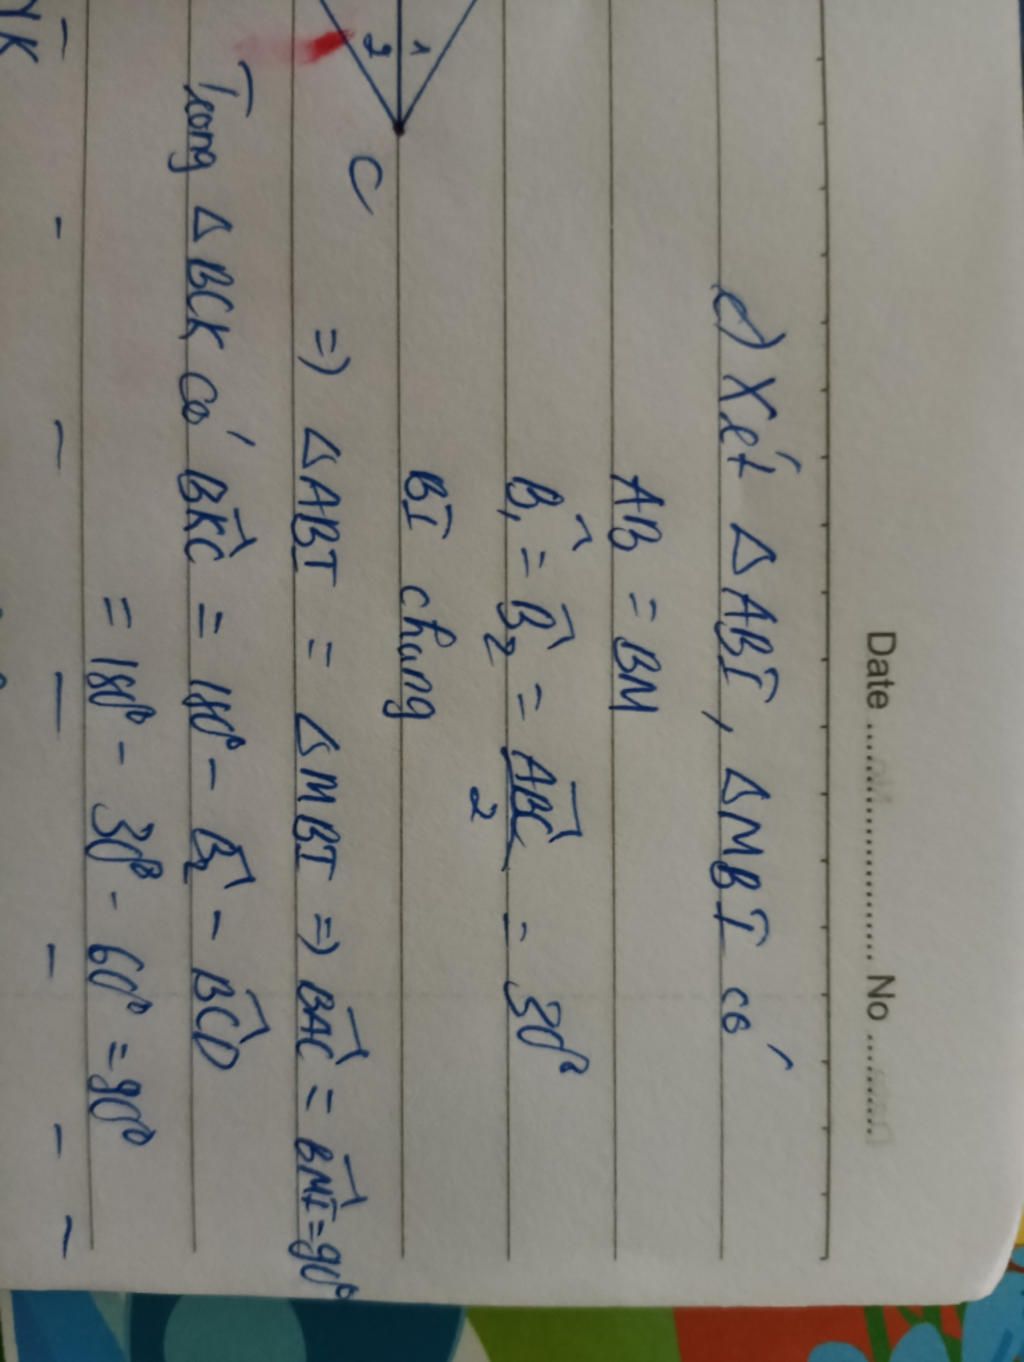 Date ........................ No ............
c) Xét △ABI, △MBI có
AB = BM
B₁^ = B₂^ = ABC^/2 = 30°
BI chung
1
2
C
=) △ABI = △MBI =) BAC^ = BMI^ = 90°
Trong △BCK có BKC^ = 180° - B₂^ - BCD^
= 180° - 30° - 60° = 90°